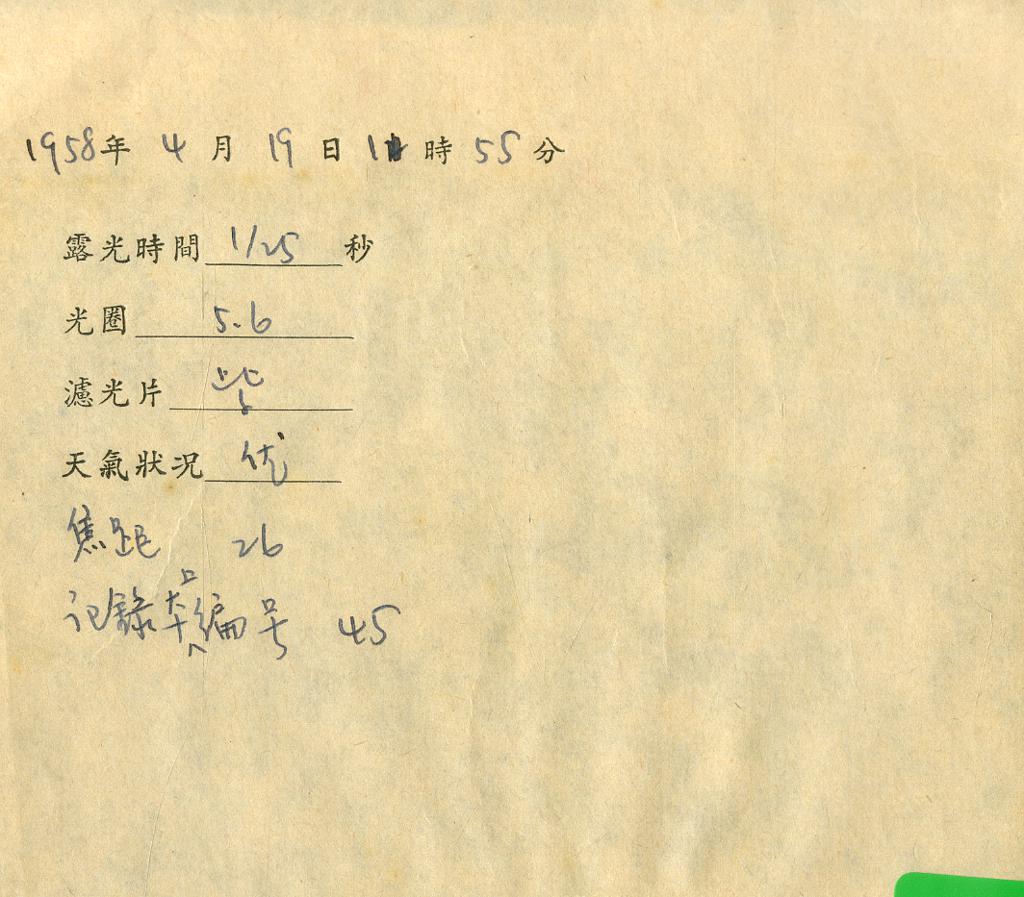 1958年 4月 19日 11時 55分
露光時間 1/25 秒
光圈 5.6
濾光片
天氣狀况 优
焦距 26
记錄本編号 45